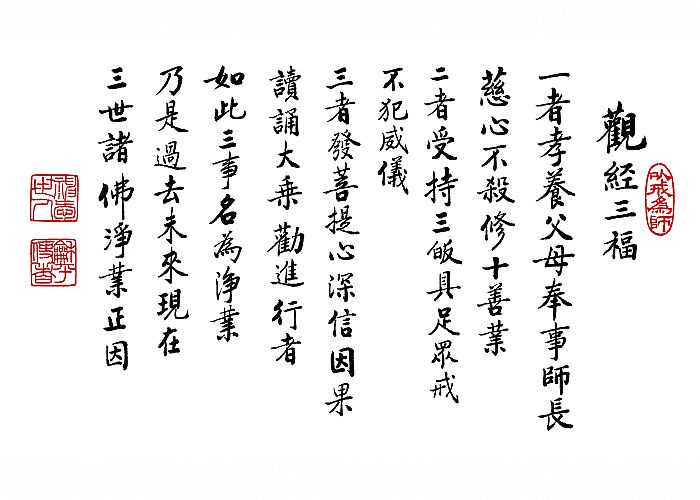 觀經三福
以戒為師
一者孝養父母奉事師長
慈心不殺修十善業
二者受持三皈具足眾戒
不犯威儀
三者發菩提心深信因果
讀誦大乘勸進行者
如此三事名為淨業
乃是過去未來現在
三世諸佛淨業正因